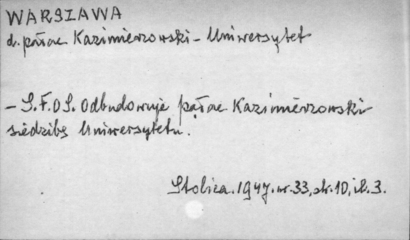 WARSZAWA
d. pałac Kazimierzowski - Uniwersytet
- S.F.O.S. Odbudowuje pałac Kazimierzowski
siedzibę Uniwersytetu.
Stolica. 1947. nr. 33, str. 10, il. 3.